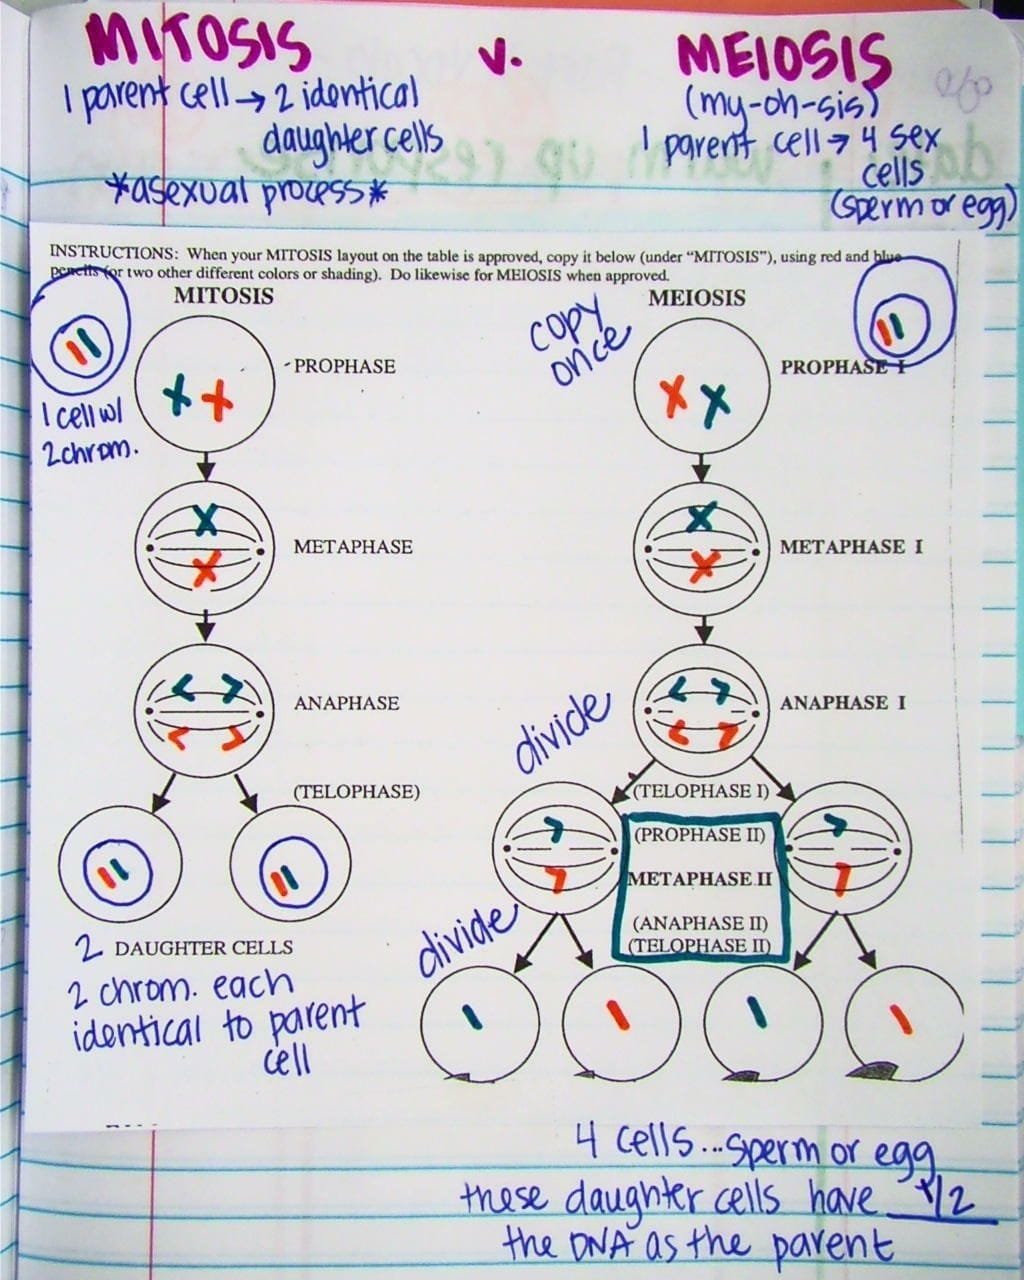 MITOSIS v. MEIOSIS
1 parent cell → 2 identical
daughter cells
*asexual process*
(my-oh-sis)
1 parent cell → 4 sex
cells
(sperm or egg)
INSTRUCTIONS: When your MITOSIS layout on the table is approved, copy it below (under “MITOSIS”), using red and blue
pencils (or two other different colors or shading). Do likewise for MEIOSIS when approved.
MITOSIS
1 cell w/
2 chrom.
PROPHASE
METAPHASE
ANAPHASE
(TELOPHASE)
2 DAUGHTER CELLS
2 chrom. each
identical to parent
cell
MEIOSIS
copy
once
PROPHASE I
METAPHASE I
ANAPHASE I
divide
(TELOPHASE I)
(PROPHASE II)
METAPHASE II
(ANAPHASE II)
(TELOPHASE II)
divide
4 cells...sperm or egg
these daughter cells have 1/2
the DNA as the parent